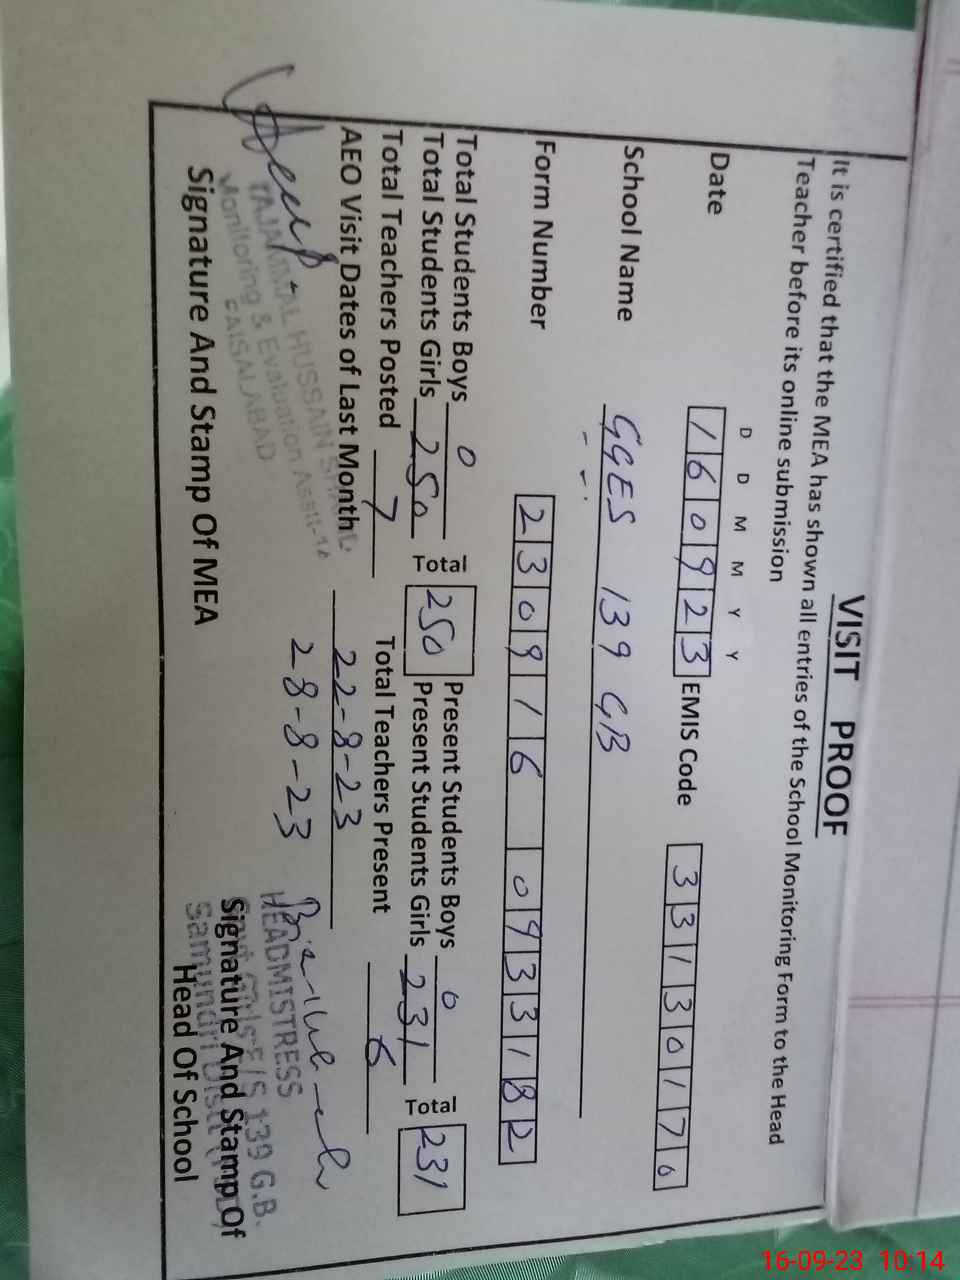 VISIT PROOF
It is certified that the MEA has shown all entries of the School Monitoring Form to the Head
Teacher before its online submission
D D M M Y Y
Date 160923 EMIS Code 33130170
School Name GGES 139 GB
Form Number 230916 0933182
Total Students Boys 0 Total 250 Present Students Boys 0 Total 231
Total Students Girls 250 Present Students Girls 231
Total Teachers Posted 7 Total Teachers Present 6
AEO Visit Dates of Last Month 22-8-23
28-8-23
TAJAMMAL HUSSAIN
Monitoring & Evaluation Asstt-
FAISALABAD
Signature And Stamp Of MEA
HEADMISTRESS
139 G.B.
Samundri
Signature And Stamp Of
Head Of School
16-09-23 10:14